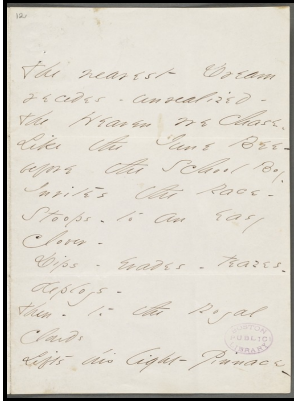 The nearest Dream
recedes - unrealized -
The Heaven we Chase -
Like the June Bee -
before the School Boy,
Invites the Race -
Stoops - to an Easy
Clover -
Dips - evades - teazes -
deploys -
Then - to the Royal
Clouds
Lifts his light Pinnace -
BOSTON
PUBLIC
LIBRARY